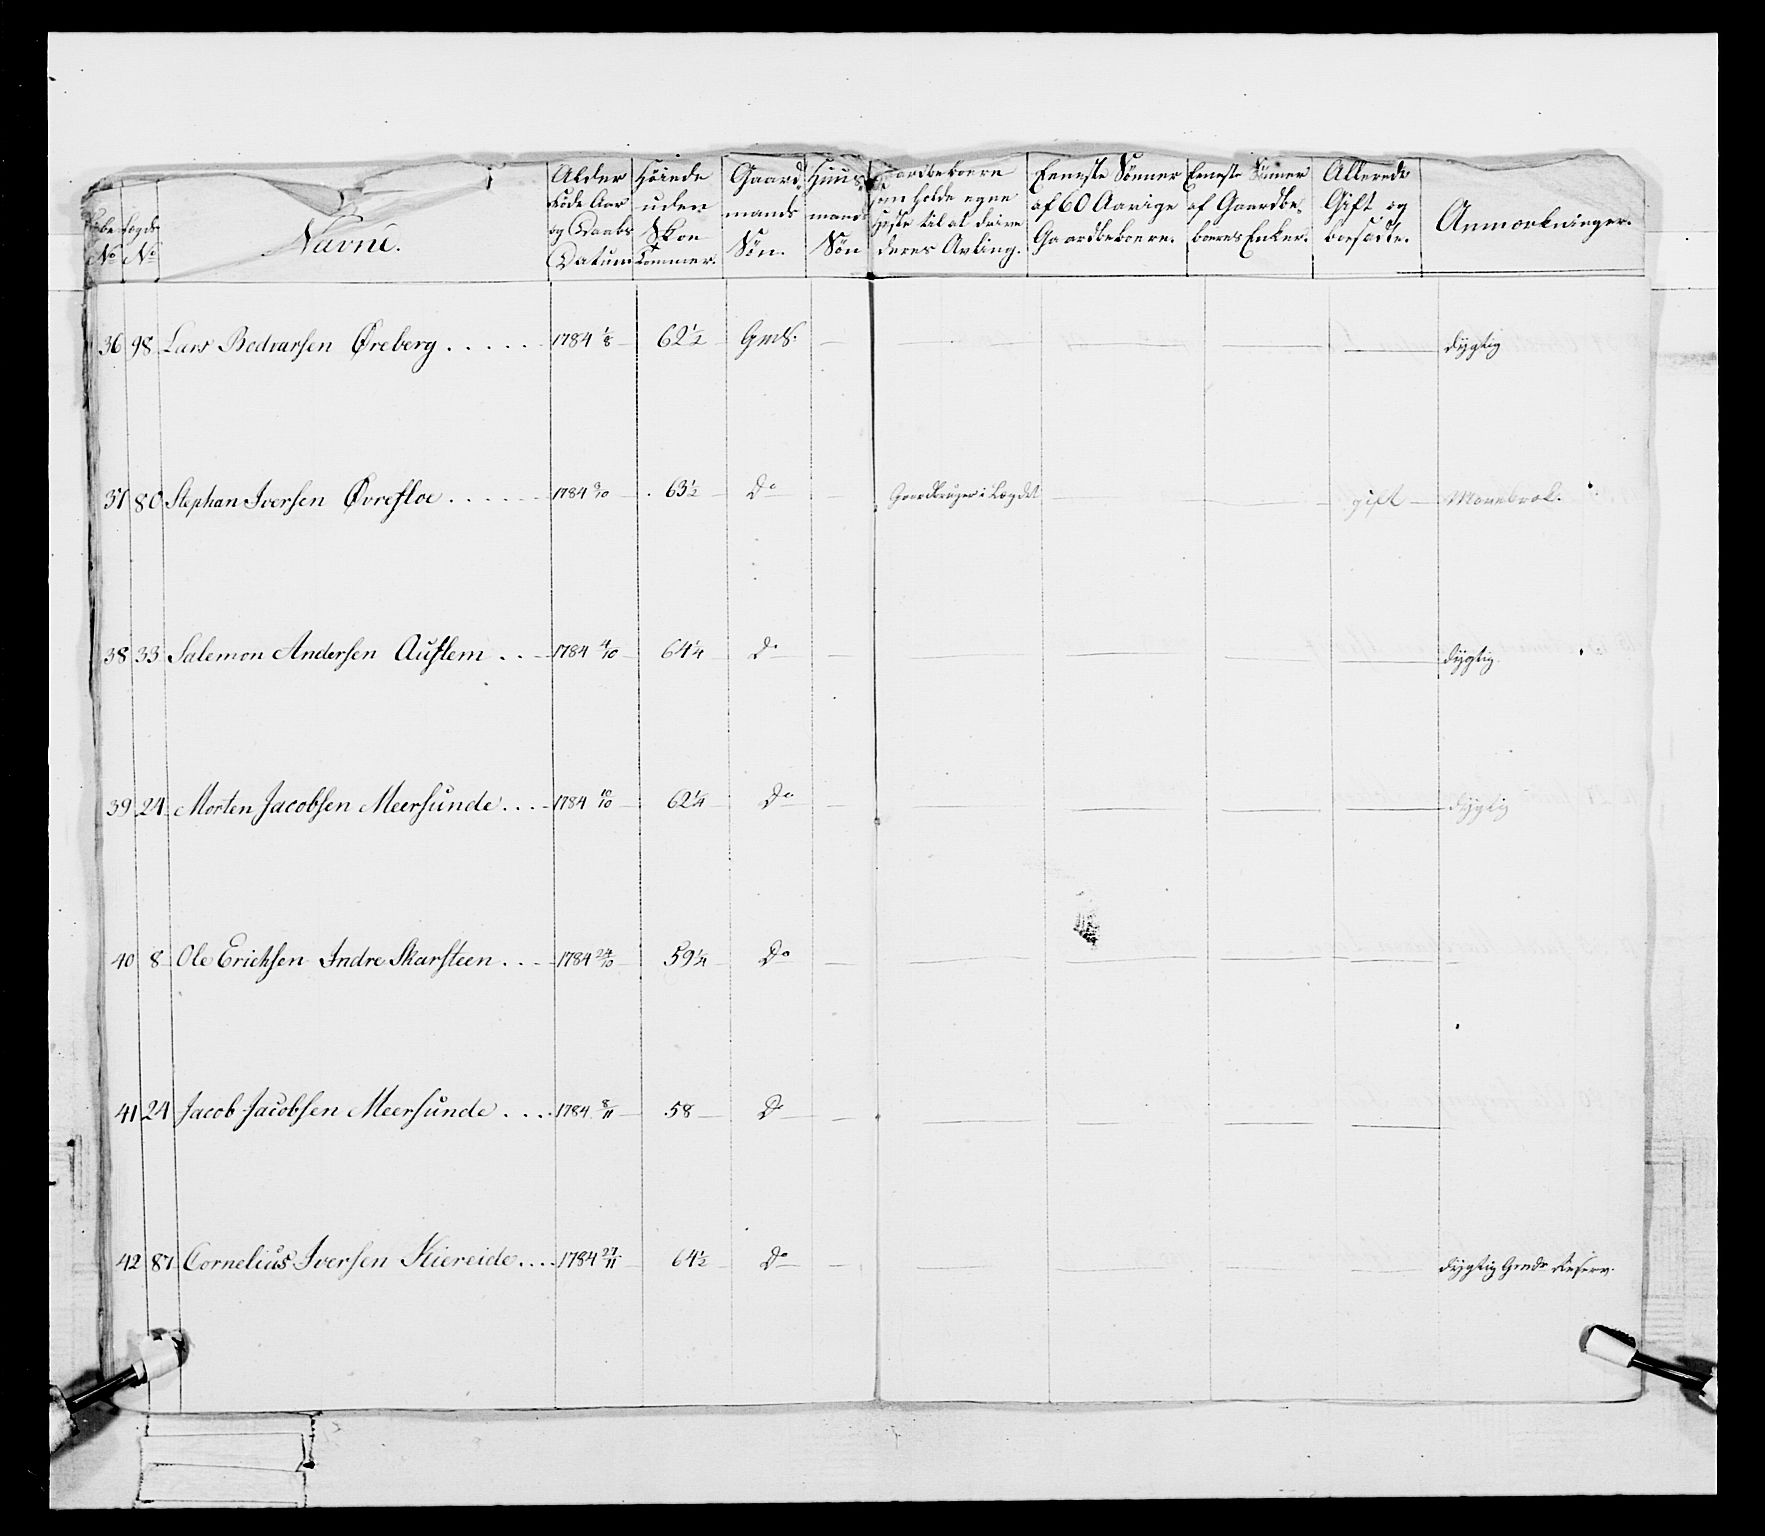 Løbe No
Lægds No
Navne.
Alder Føde Aar og Daabs Datum
Høiede uden Skoe Tommer.
Gaard mands Søn.
Huus mands Søn
Gaardbeboere som holde egne Heste til at drive deres Avling.
Eeneste Sønner af 60 Aarige Gaardbeboere.
Eeneste Sønner af Gaardbeboeres Enker.
Allerede Gift og bosadte.
Anmærkninger.
36 98 Lars Bodvarsen Øreberg . . . . . 1784 1/8 62 1/2 Gmds. dygtig
37 80 Stephan Iversen Øvrefloe . . . . . . 1784 9/10 63 1/2 Do Gaardbruger i Lægdet gift
38 33 Salemon Andersen Auflem . . 1784 4/10 64 1/4 Do dygtig.
39 24 Morten Jacobsen Meersunde . . . 1784 10/10 62 1/4 Do dygtig
40 8 Ole Erichsen Indre Skarsteen . . . 1784 24/10 59 1/4 Do
41 24 Jacob Jacobsen Meersunde . . . . 1784 8/11 58 Do
42 87 Cornelius Iversen Kiereide . . . . 1784 27/11 64 1/2 Do dygtig Gmds Reserv.